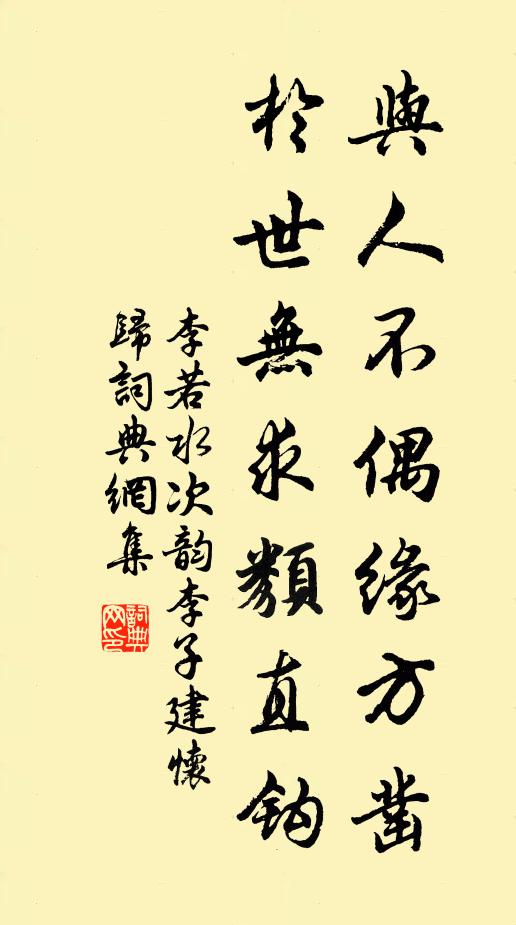 與人不偶緣方凿
於世無求類直鈎
李若水次韵李子建懷
歸詞典網集
詞典網印